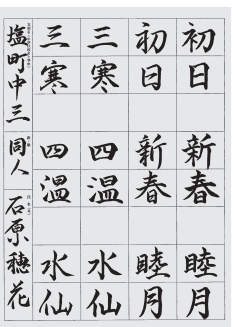 初日新春睦月
初日新春睦月
三寒四温水仙
三寒四温水仙
塩町中三 同人 石原穂花